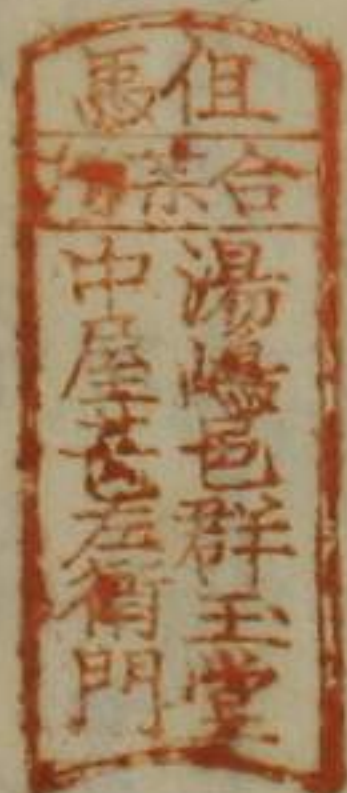 但馬
合
湯嶋邑群玉堂
中屋甚左衛門